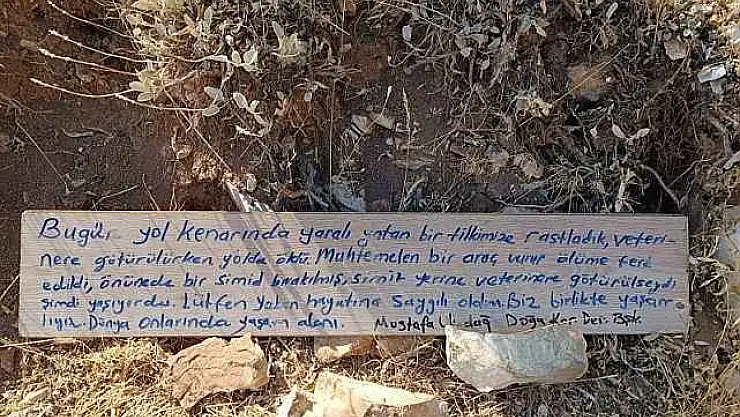 Bugün yol kenarında yaralı yatan bir tilkimize rastladık, veteri-
nere götürülürken yolda öldü, Muhtemelen bir araç vurur ölüme terk
edildi, önünede bir simid bırakılmış, simit yerine veterinere götürülseydi
şimdi yaşıyordu. Lütfen Yaban hayatına Saygılı olalım. Biz birlikte yaşam
lıyız. Dünya onlarında yaşam alanı. Mustafa Uludağ Doğa Kor. Der. Bşk.